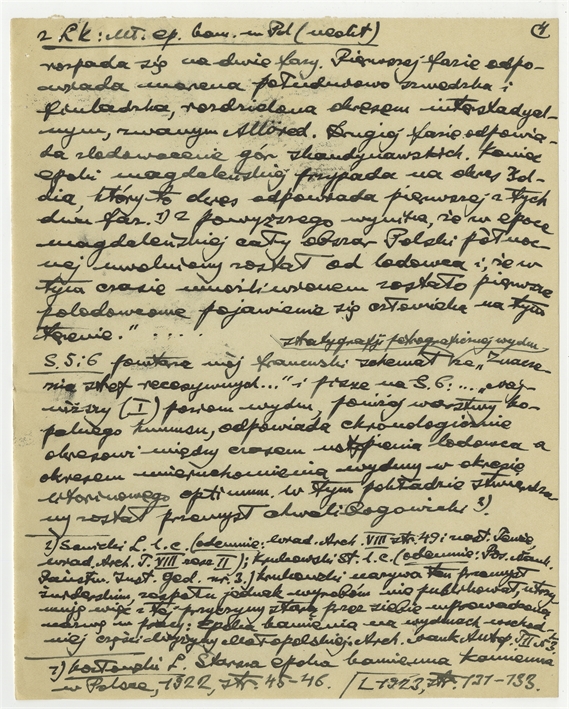 2 L.K: Mł. ep. kam. w Pol (neolit) 4
rozpada się na dwie fazy. Pierwszej fazie odpo-
wiada morena południowo szwedzka i
finlandzka, rozdzielona okresem interstadyal-
nym, zwanym Alleröd. Drugiej fazie odpowia-
da zlodowacenie gór skandynawskich. Koniec
epoki magdaleńskiej przypada na okres Yol-
dia, który to okres odpowiada pierwszej z tych
dwu faz. 1) Z powyższego wynika, że w epoce
magdaleńskiej cały obszar Polski północ-
nej uwolniony został od lodowca i, że w
tym czasie umożliwionem zostało pierwsze
polodowcowe pojawienie się człowieka na tym
terenie." . . . . .
statygrafji petrograficznej wydm
S. 5 i 6 powtarza mój francuski schemat ze „Znacze-
nia stref recesywnych..." i pisze na S. 6: ... „naj-
niższy (I) poziom wydm, poniżej warstwy ko-
palnego humusu, odpowiada chronologicznie
okresowi między czasem ustąpienia lodowca a
okresem unieruchomienia wydmy w okresie
litorinowego optimum. W tym pokładzie stwierdzo-
ny został przemysł chwalibogowicki 2).
2) Sawicki L. l. c. (odemnie: Wiad. Arch. VIII str. 49 i nast. Tenże
Wiad. Arch. T. VIII zesz II); Krukowski St. l. c. (odemnie: Pos. Nauk.
Państw. Inst. Geol. nr. 3.) Krukowski nazywa ten przemysł
świderskim, zespołu jednak wyrobów nie publikował, utrzy-
muję więc z tej przyczyny starą przez siebie wprowadzoną
nazwę w pracy: Epoka kamienna na wydmach wschod-
niej części Wyżyny Małopolskiej. Arch. Nauk Antrop. T. II nr. 3.
1) Kozłowski L. Starsza epoka kamienna
w Polsce, 1922, str. 45-46. [L 1923, str. 131-133.